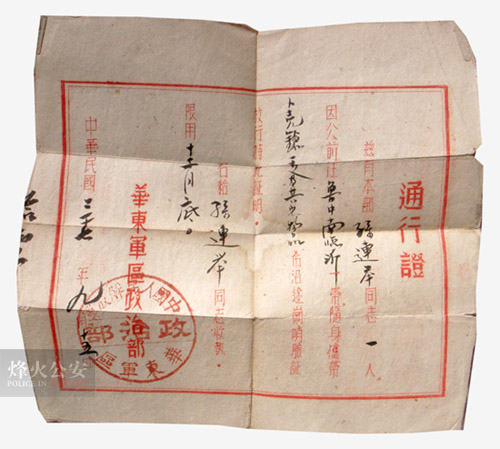 通行證
茲有本部 孫連举 同志 一 人
因公前往 魯中南临沂 一帶隨身攜帶
希沿途崗哨驗証
放行特此証明。
右給 孫連举 同志收執。
限用 十二月底
華東軍區政治部
中華民國 三七 年 九 月 十五
中國人民解放軍
華東軍區
政治部
烽火公安
POLICE.IN